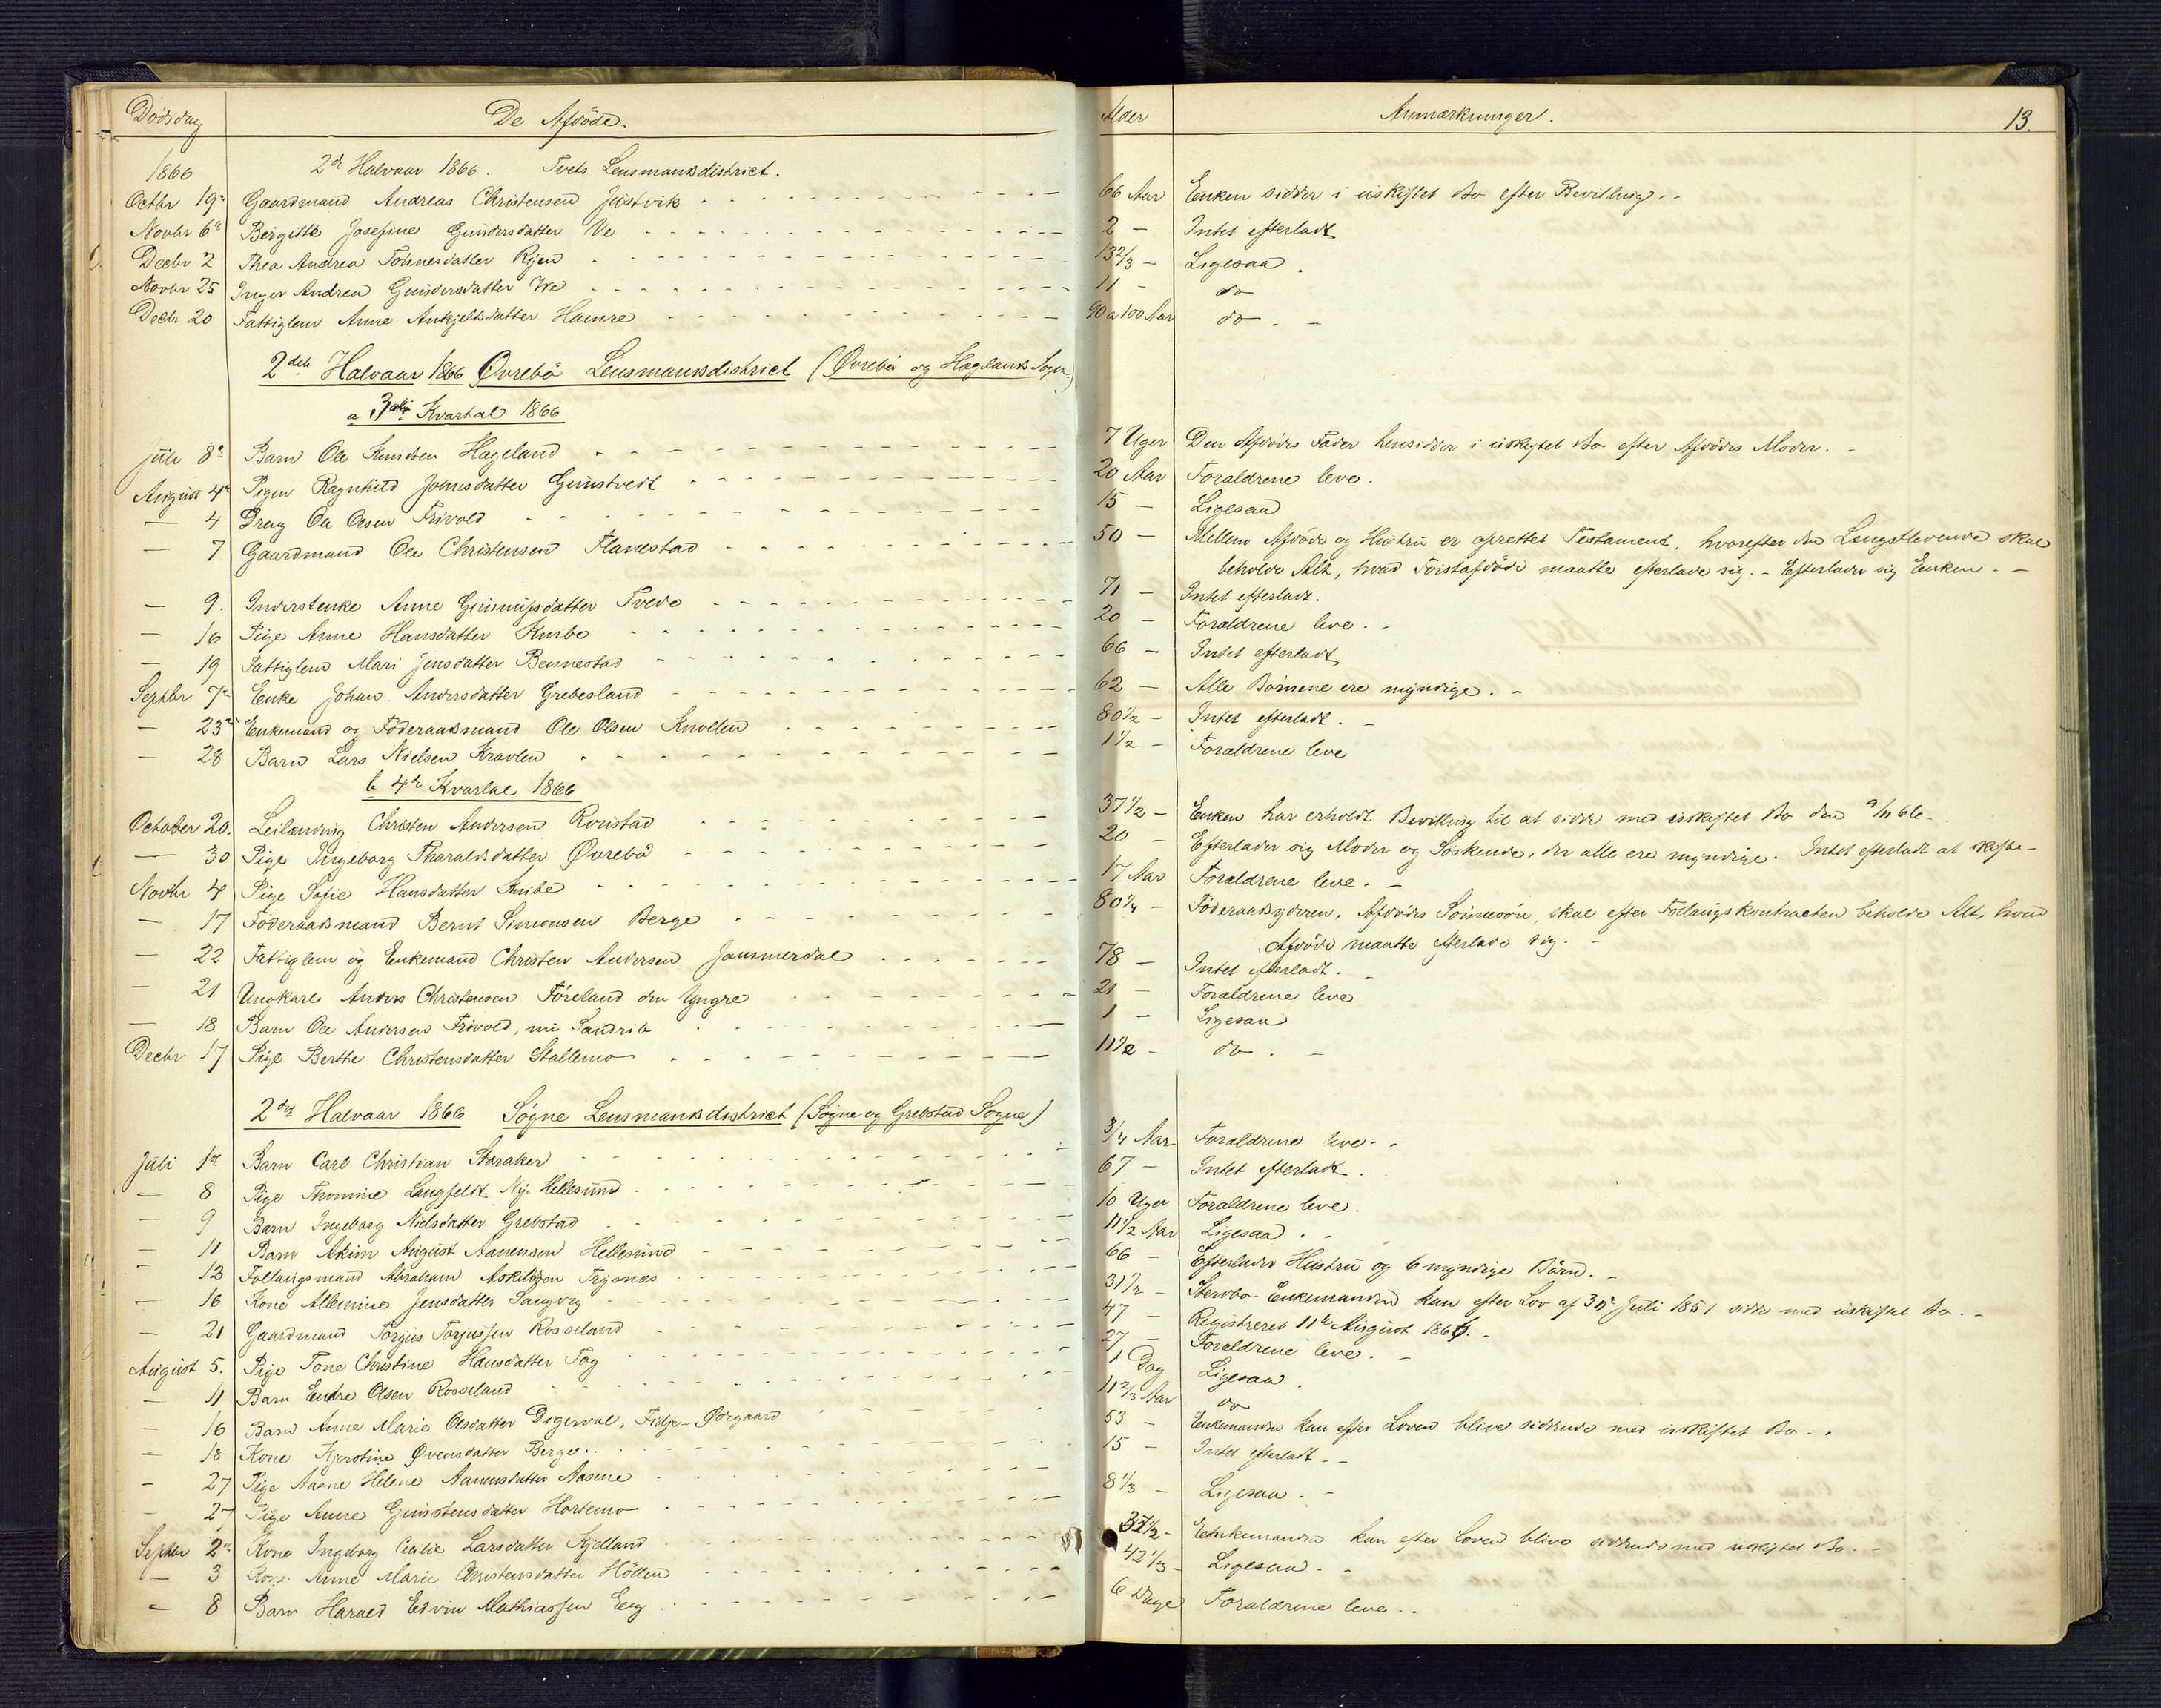 Dödsdag De Afdöde. Alder Anmærkninger. 13.
1866 2det Halvaar 1866. Tvets Lensmandsdistrict.
Octbr 19de Gaardmand Andreas Christensen Justvik 66 Aar Enken sidder i uskiftet Bo efter Bevilling.
Novbr 6te Birgitte Josefine Gundersdatter Ve 2 — Intet efterladt
Decbr 2 Thea Andrea Tönnesdatter Ryen 13 2/3 — Ligesaa.
Novbr 25 Inger Andrea Gundersdatter We 11 - do
Decbr 20 Fattiglem Anne Ankjeltsdatter Hamre 90 a 100 Aar do. -
2det Halvaar 1866 Øvrebö Lensmandsdistrict (Øvrebö og Hægelands Sogn.)
a 3die Kvartal 1866
Juli 8de Barn Ole Knudsen Hageland 7 Uger Den Afdödes Fader hensidder i uskiftet Bo efter Afdödes Moder. -
August 4de Pigen Ragnhild Jonsdatter Gunstvedt 20 Aar Forældrene leve.
— 4 Dreng Ole Olsen Frivold 15 — Ligesaa
— 7 Gaardmand Ole Christensen Flanestad 50 — Mellem Afdöde og Hustru er oprettet Testament, hvorefter den Længstlevende skal
beholde Alt, hvad Förstafdöde maatte efterlade sig. - Efterlader sig Enken. -
— 9. Inderstenke Anne Gunnufsdatter Tvedo 71 — Intet efterladt.
— 16 Pige Anne Hansdatter Knibe 20 — Forældrene leve. -
— 19 Fattiglem Mari Jensdatter Bennestad 66 — Intet efterladt
Septbr 7de Enke Johan Andersdatter Grebesland 62 — Alle Börnene ere myndige. -
— 23de Enkemand og Föderaadsmand Ole Olsen Knollen 80 1/2 — Intet efterladt. -
— 28 Barn Lars Nielsen Kravlen 1 1/2 — Forældrene leve
b 4de Kvartal 1866
October 20. Leilænding Christen Andersen Rovstad 37 1/2 — Enken har erholdt Bevilling til at sidde med uskiftet Bo den 9/11 66 -
— 30 Pige Ingeborg Tharaldsdatter Øvrebö 20 — Efterlader sig Moder og Söskende, der alle ere myndige. Intet efterladt at skifte -
Novbr 4 Pige Sofie Hansdatter Knibe 17 Aar Forældrene leve. -
— 17 Föderaadsmand Bernt Simonsen Berge 80 1/4 — Föderaadsyderen, Afdödes Sönnesön, skal efter Follaugskontracten beholde Alt, hvad
Afdöde maatte efterlade sig. -
— 22 Fattiglem og Enkemand Christen Andersen Jammerdal 78 — Intet efterladt. -
— 21 Ungkarl Anders Christensen Föreland den Yngre 21 — Forældrene leve
— 18 Barn Ole Andersen Frivold, nu Sandrib 1 — Ligesaa
Decbr 17 Pige Berthe Christensdatter Stallemo 11 1/2 — do. -
2det Halvaar 1866 Sögne Lensmandsdistrict (Sögne og Grebstad Sogne)
Juli 1ste Barn Carl Christian Staraker 3/4 Aar Forældrene leve. -
— 8 Pige Thomine Langfeldt Ny-Hellesund 67 — Intet efterladt.
— 9 Barn Ingeborg Nielsdatter Grebstad 10 Uger Forældrene leve.
— 11 Barn Akim August Aanensen Hellesund 1 1/2 Aar Ligesaa. -
— 13 Follaugsmand Abraham Askildsen Trysnæs 66 — Efterlader Hustru og 6 myndige Börn. -
— 16 Kone Allemine Jensdatter Sangvig 31 1/2 — Stervbo-Enkemanden kan efter Lov af 30te Juli 1851 sidde med uskiftet Bo. -
— 21 Gaardmand Torjus Torjussen Rosseland 47 — Registreret 11te August 1866. -
August 5. Pige Tone Christine Hansdatter Tag 27 — Forældrene leve. -
— 11 Barn Endre Olsen Rosseland 1 Dag Ligesaa.
— 16 Barn Anne Marie Olsdatter Digerval, Fidje-Ødegaard 11 2/3 Aar do
— 18 Kone Kjerstine Ovensdatter Berge 53 — Enkemanden kan efter Loven blive siddende med uskiftet Bo. -
— 27 Pige Aasne Helene Aanensdatter Aasene 15 — Intet efterladt. -
— 27 Pige Anne Gunstensdatter Hortemo 8 1/3 — Ligesaa. -
Septbr 2den Kone Ingeborg Cecilie Larsdatter Kjelland 37 1/2 - Enkemanden kan efter Loven blive siddende med uskiftet Bo. -
— 3 Kone Anne Marie Christensdatter Höllen 42 1/3 - Ligesaa. -
— 8 Barn Harald Edvin Mathiassen Eeg 6 Dage Forældrene leve. -